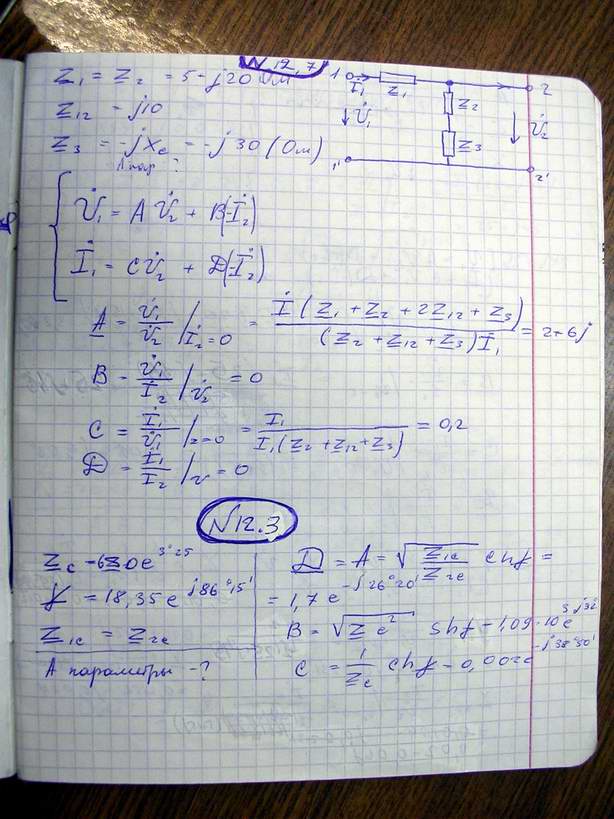 N 12.7
Z1 = Z2 = 5 - j20 Ом
Z12 = j10
Z3 = -jXc = -j30 (Ом)
A пар ?
1 İ1 Z1 2
Z2
U̇1 U̇2
Z3
1' 2'
U̇1 = A U̇2 + B(-İ2)
İ1 = C U̇2 + D(-İ2)
A = U̇1/U̇2 /İ2=0 = İ(Z1 + Z2 + 2Z12 + Z3)/(Z2 + Z12 + Z3)İ1 = 2+6j
B - U̇1/İ2 /U̇2 = 0
C = İ1/U̇1 /2=0 = I1/I1(Z2 + Z12 + Z3) = 0,2
D = İ1/I2 /U = 0
N12.3
Zc = 630e
γ = 18,35 e^j86°15'
Z1c = Z2c
A параметры - ?
D = A = √(Z1c/Z2c) chγ =
= 1,7 e^-j26°20'
B = √Zc² shγ - 1,09·10
C = 1/Zc chγ - 0,002e^-j38°30'